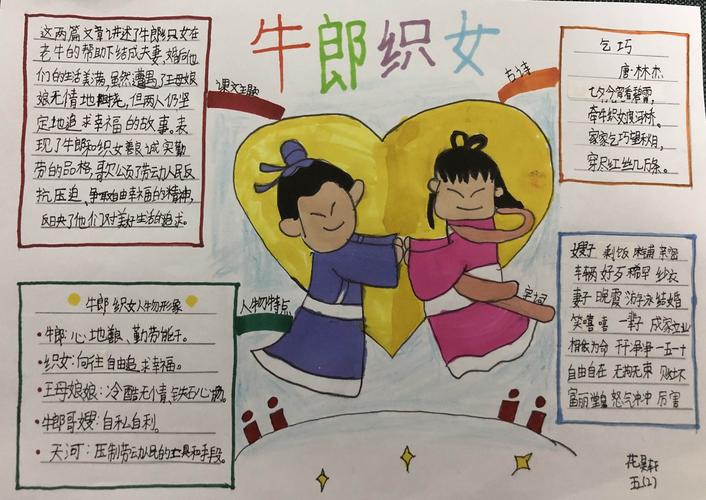 牛郎织女
课文主题
这两篇文章讲述了牛郎织女在
老牛的帮助下结成夫妻,婚后他
们的生活美满,虽然遭遇了王母娘
娘无情地阻挠,但两人仍坚
定地追求幸福的故事。表
现了牛郎和织女善良、诚实勤
劳的品格,歌公页了劳动人民反
抗压迫、争取自由幸福的精神,
反映了他们对美好生活的追求。
古诗
乞巧
唐·林杰
七夕今宵看碧霄,
牵牛织女渡河桥。
家家乞巧望秋月,
穿尽红丝几万条。
人物特点
牛郎织女人物形象
·牛郎:心地善良、勤劳能干。
·织女:向往自由追求幸福。
·王母娘娘:冷酷无情、铁石心肠。
·牛郎哥嫂:自私自利。
·天河:压制劳动人民的工具和手段。
字词
嫂子 剩饭
车辆 好歹 稀罕 纱衣
妻子 晚霞 游泳 结婚
笑嘻嘻 一辈子 成家立业
相依为命 干干净净 一五一十
自由自在 无拘无束
富丽堂皇 怒气冲冲 厉害
五(2)